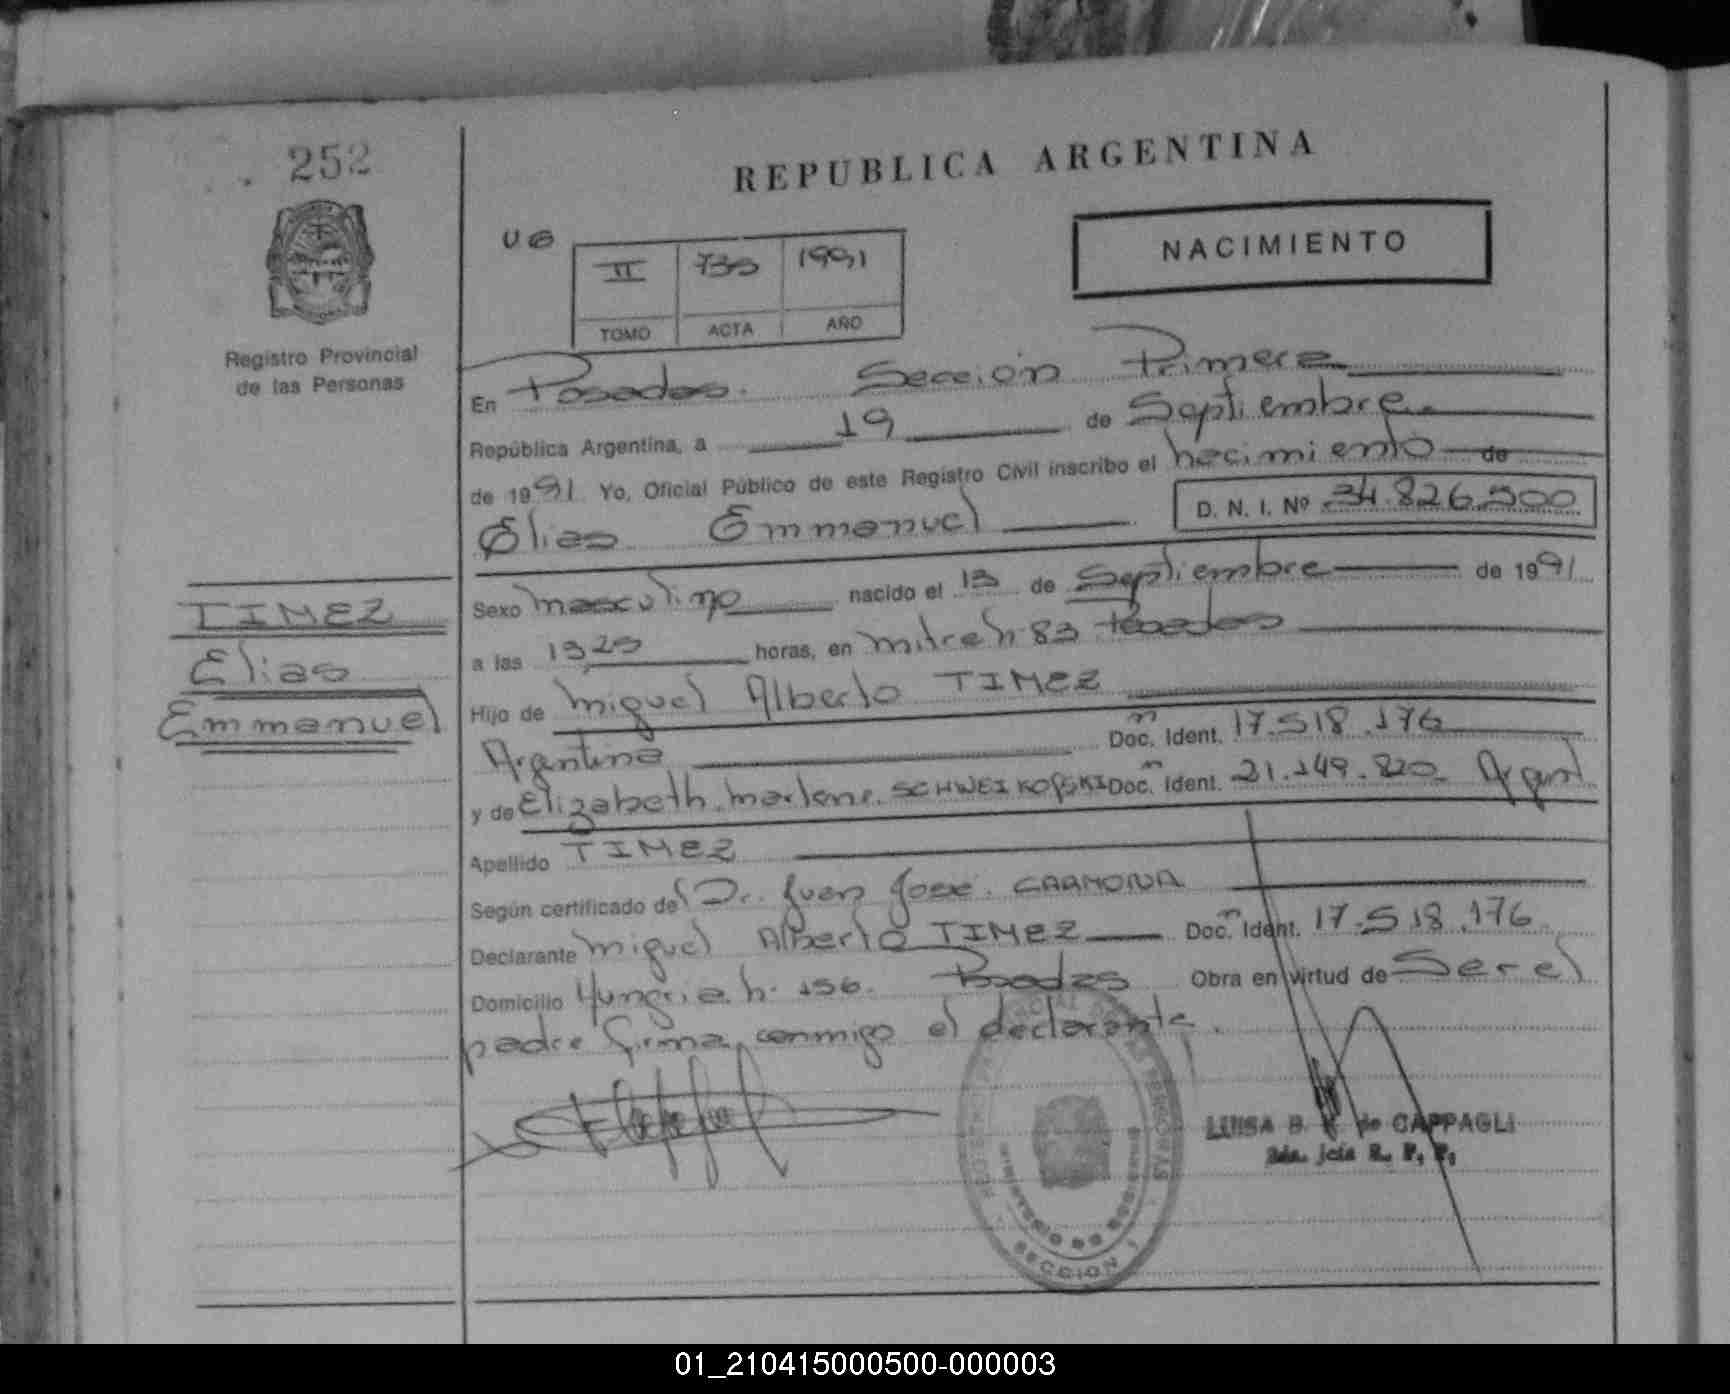 252
REPUBLICA ARGENTINA
NACIMIENTO
II 735 1991
TOMO ACTA AÑO
Registro Provincial
de las Personas
En Posadas. Sección Primera
República Argentina, a 19 de Septiembre.
de 1991 Yo, Oficial Público de este Registro Civil inscribo el nacimiento de
Elias Emmanuel D. N. I. Nº 34.826.500
Sexo masculino nacido el 13 de Septiembre de 1991
a las 1325 horas, en mitre h. 83 Posadas
Hijo de Miguel Alberto TIMEZ
Argentina Doc. Ident. 17.518.176
y de Elizabeth Marlene SCHWEIKOFSKI Doc. Ident. 21.149.820 Argent
Apellido TIMEZ
Según certificado del Dr. Juan José. CARMONA
Declarante Miguel Alberto TIMEZ Doc. Ident. 17.518.176
Domicilio Hungria h. 156. Posadas Obra en virtud de Ser el
padre firma conmigo el declarante.
TIMEZ
Elias
Emmanuel
LUISA B. de CAPPAGLI
SECCION 1
01_210415000500-000003